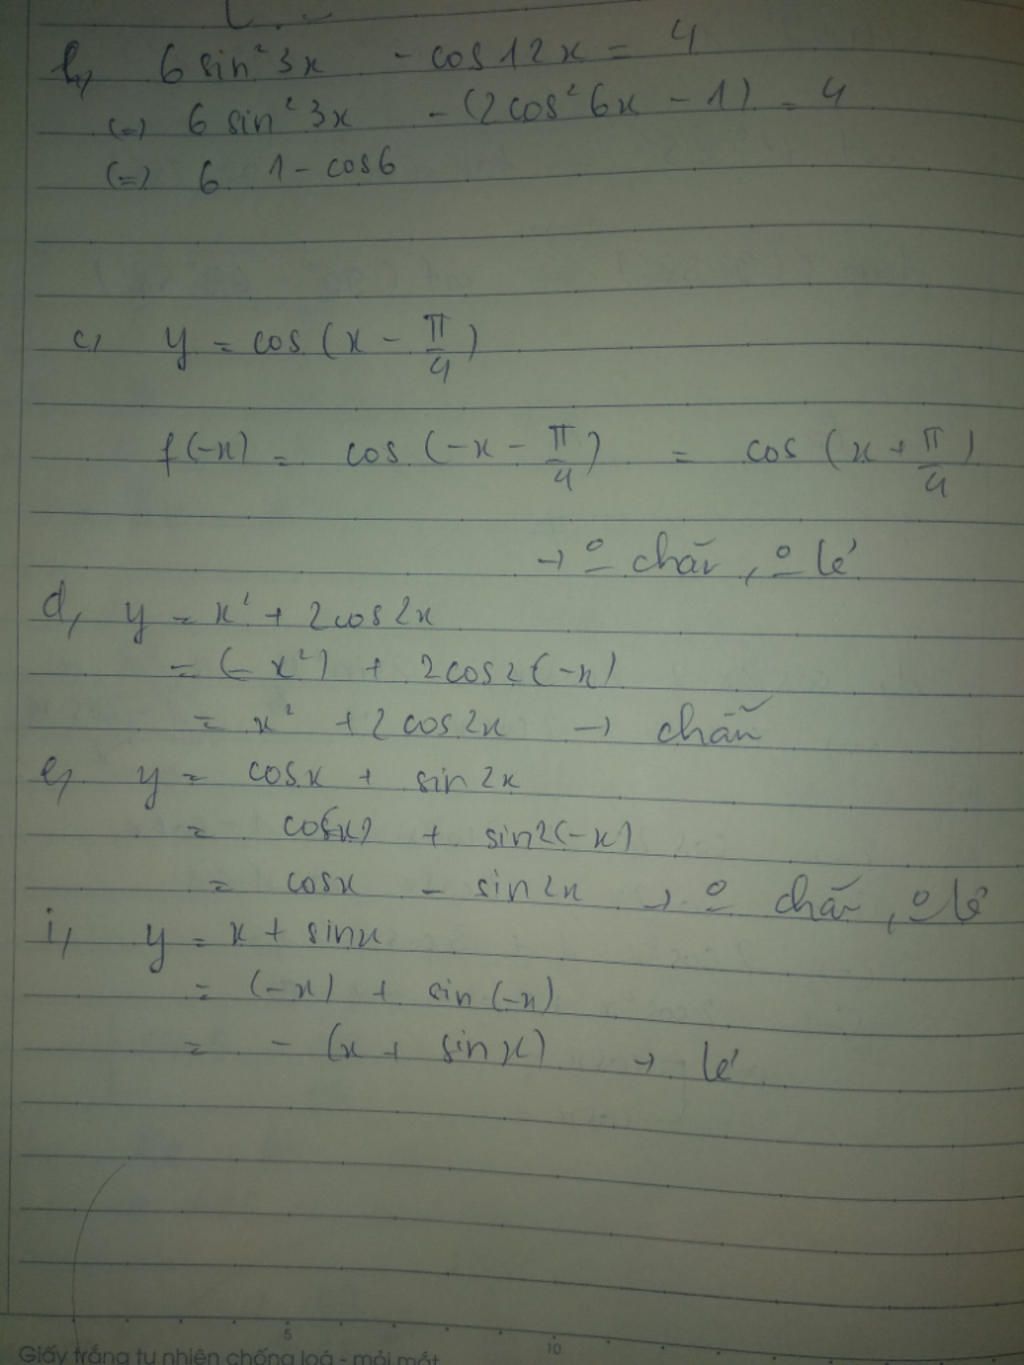 h, 6 sin²3x - cos12x = 4
(=) 6 sin²3x - (2cos²6x - 1) = 4
(=) 6. 1 - cos6
c, y = cos(x - π/4)
f(-x) = cos(-x - π/4) = cos(x + π/4)
→ o chẵn, o lẻ
d, y = x² + 2cos2x
= (-x²) + 2cos2(-x)
= x² + 2cos2x → chẵn
e, y = cosx + sin2x
= cos(-x) + sin2(-x)
= cosx - sin2x → o chẵn, o lẻ
i, y = x + sinx
= (-x) + sin(-x)
= - (x + sinx) → lẻ
5
10
Giấy trắng tự nhiên chống loá - mỏi mắt